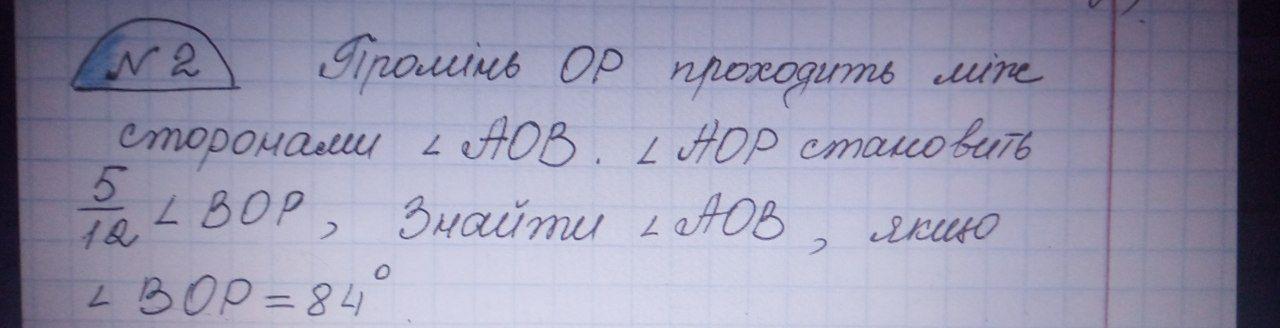 N 2 Промінь OP проходить між
сторонами ∠ AOB. ∠ AOP становить
5/12 ∠ BOP, Знайти ∠ AOB, якщо
∠ BOP = 84°